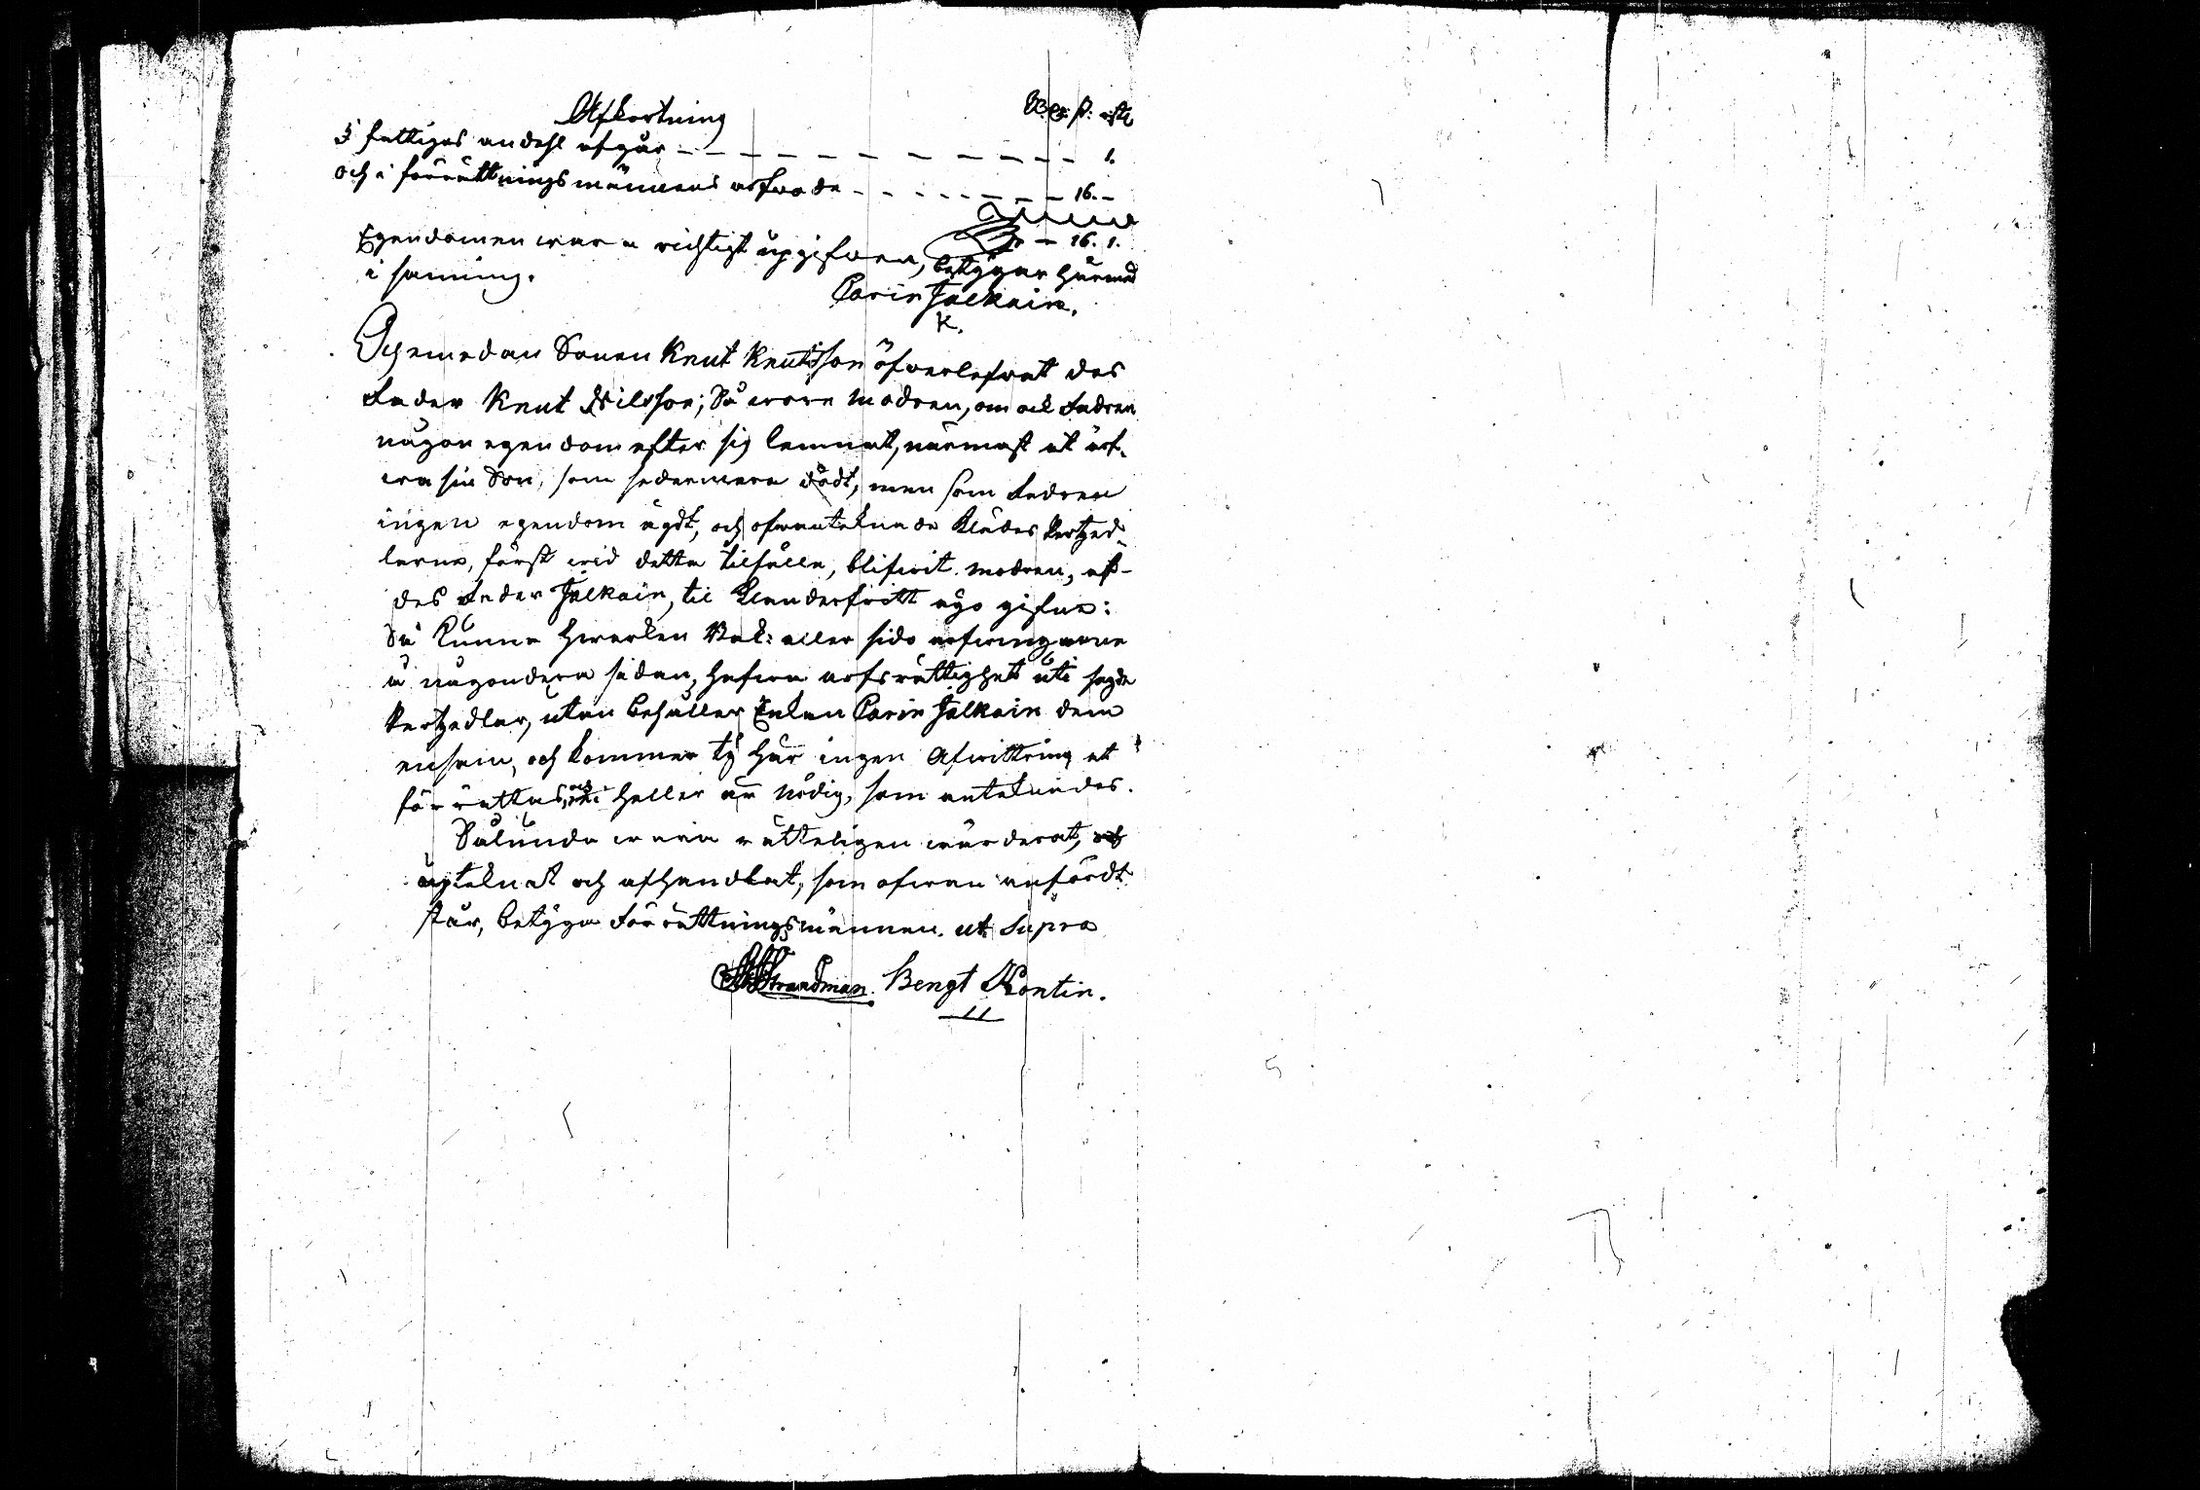 Afkortning
B.co: s: rst
I fattigas andehl afgår — — — — — — — — 1.
och i förrättningsmännens arfwode — — — — 16. —
— 16. 1.
Egendomen wara richtigt upgifwen, betygar härmed
i sanning.
Carin Jalkain.
K.
Och emedan Sonen Knut Knutsson öfwerlefwat des
Fader Knut Nilsson; Så wore modren, om ock Fadren
någon egendom efter sig lemnat, närmast at ärf-
wa sin Son, som sedermera dödt, men som Fadren
ingen egendom ägdt, och ofwanteknade Klädes Pertzed-
larne, först wid detta tilfälle, blifwit modren, af
des Fader Jalkain, til Klanderfritt ägo gifne:
Så kunna hwarken Bak: eller sido arfwingarne
å någondera sidan, hafwa arfsrättighet uti sagde
Pertzedlar, utan behåller Enkan Carin Jalkain dem
ensam, och kommer ty här ingen Afwittring at
förrättas, ej heller är nödig, som anteknades.
Sålunda wara rätteligen wärderat,
upteknat och afhandlat, som ofwan anfördt
står, betyga Förrättningsmännen. ut Supra
Strandman. Bengt Pontin.